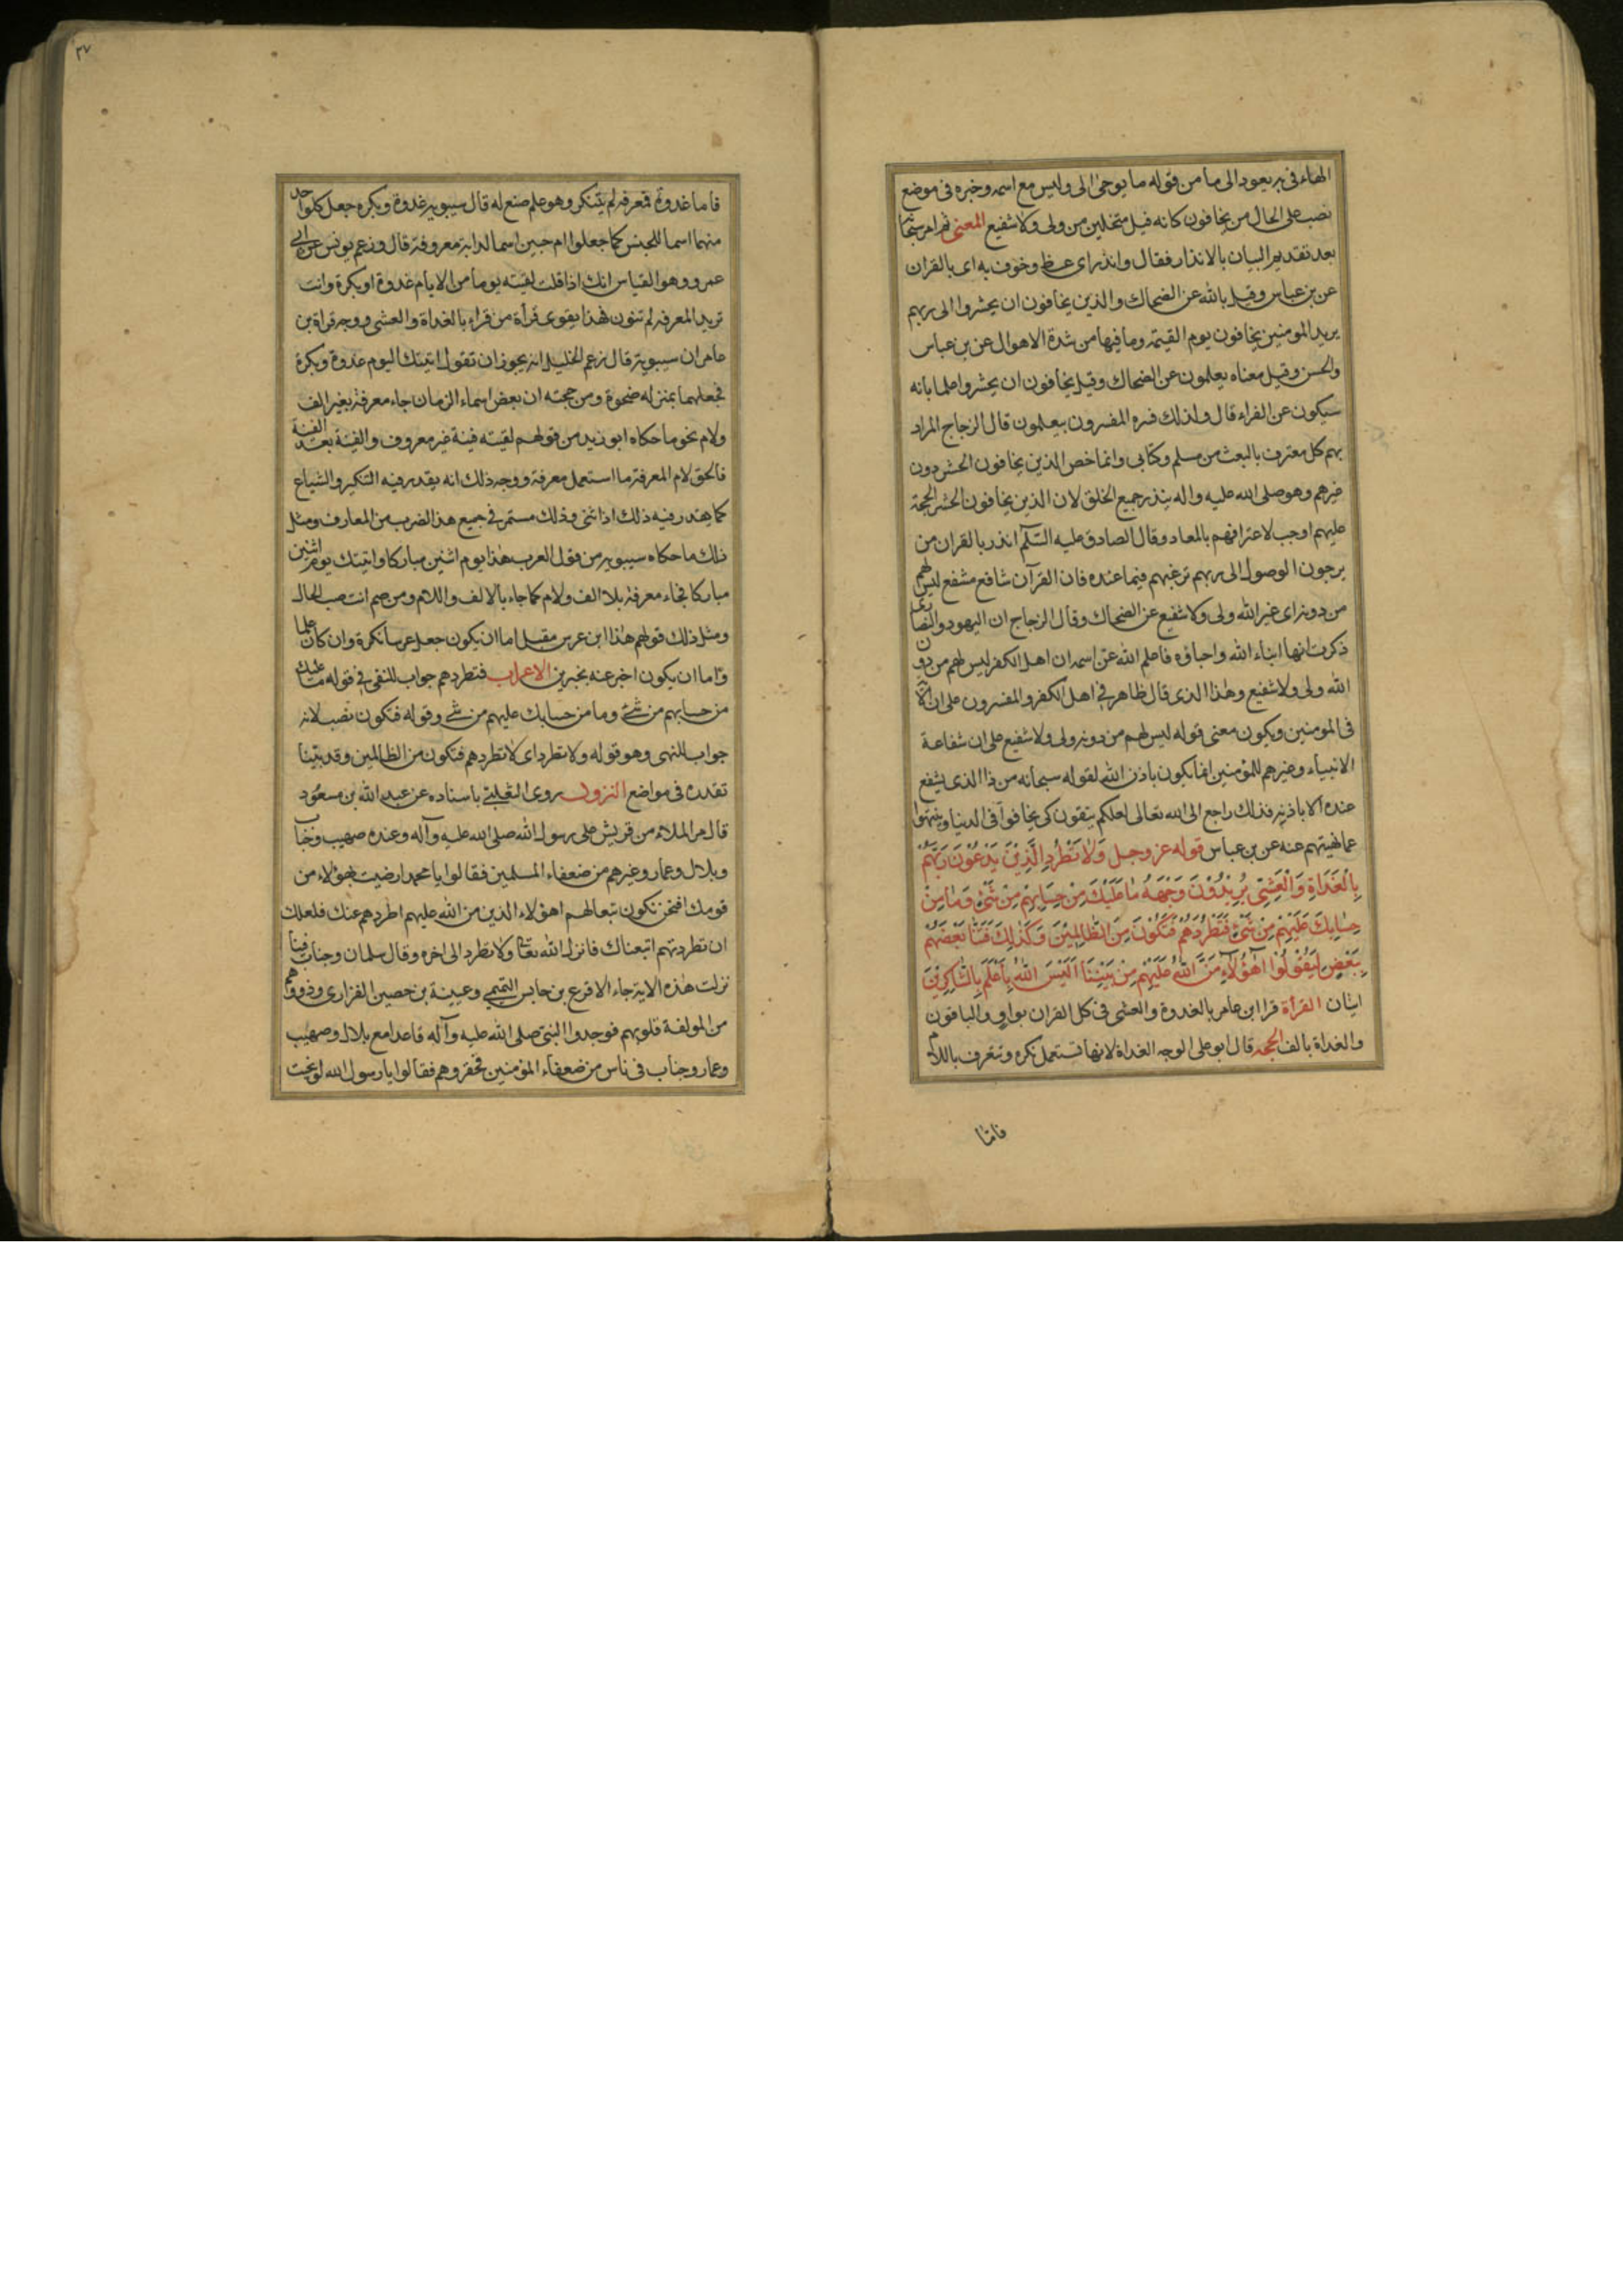 الهاء فى به يعود الى ما من قوله ما يوحى الى وليس مع اسمه وخبره فى موضع
نصب على الحال من يخافون كانه قيل متخلين من ولى ولا شفيع المعنى ثم امر سبحانه
بعد تقديم البيان بالانذار فقال وانذر اى عظ وخوف به اى بالقران
عن بن عباس وقيل بالله عن الضحاك والذين يخافون ان يحشروا الى ربهم
يريد المومنين يخافون يوم القيمة وما فيها من شدة الاهوال عن بن عباس
والحسن وقيل معناه يعلمون عن الضحاك وقيل يخافون ان يحشروا علما بانه
سيكون عن الفراء قال ولذلك فسره المفسرون بيعلمون قال الزجاج المراد
بهم كل معترف بالبعث من مسلم وكتابى وانما خص الذين يخافون الحشر دون
غيرهم وهو صلى الله عليه واله ينذر جميع الخلق لان الذين يخافون الحشر الحجة
عليهم اوجب لاعترافهم بالمعاد وقال الصادق عليه السلم انذر بالقران من
يرجون الوصول الى ربهم ترغبهم فيما عنده فان القرآن شافع مشفع ليس لهم
من دونه اى غير الله ولى ولا شفيع عن الضحاك وقال الزجاج ان اليهود والنصارى
ذكرت انها ابناء الله واحباؤه فاعلم الله عز اسمه ان اهل الكفر ليس لهم من دون
الله ولى ولا شفيع وهذا الذى قال ظاهر فى اهل الكفر والمفسرون على ان الآية
فى المومنين ويكون معنى قوله ليس لهم من دونه ولى ولا شفيع على ان شفاعة
الانبياء وغيرهم للمؤمنين انما يكون باذن الله لقوله سبحانه من ذا الذى يشفع
عنده الا باذنه فذلك راجع الى الله تعالى لعلكم يتقون كى يخافوا فى الدنيا وينتهوا
عما نهيتهم عنه عن بن عباس قوله عز وجل وَلَا تَطْرُدِ الَّذِيْنَ يَدْعُوْنَ رَبَّهُمْ
بِالْغَدَاةِ وَالْعَشِىِّ يُرِيْدُوْنَ وَجْهَهُ مَا عَلَيْكَ مِنْ حِسَابِهِمْ مِنْ شَىْءٍ وَمَا مِنْ
حِسَابِكَ عَلَيْهِمْ مِنْ شَىْءٍ فَتَطْرُدَهُمْ فَتَكُوْنَ مِنَ الظَّالِمِيْنَ وَكَذٰلِكَ فَتَنَّا بَعْضَهُمْ
بِبَعْضٍ لِيَقُوْلُوْا اَهٰؤُلَاءِ مَنَّ اللهُ عَلَيْهِمْ مِنْ بَيْنِنَا اَلَيْسَ اللهُ بِاَعْلَمَ بِالشَّاكِرِيْنَ
ايتان القرأة قرا ابن عامر بالغدوة والعشى فى كل القران بواو والباقون
والغداة بالف الحجه قال ابو على الوجه الغداة لانها تستعمل نكرة وتتعرف باللام
فامّا
٣٧
فاما غدوة فمعرفه لم يتنكر وهو علم صنع له قال سيبويه غدوة وبكره جعل كل واحد
منهما اسما للجنس كما جعلوا ام حبين اسما لدابة معروفة قال وزعم يونس عن ابى
عمرو وهو القياس انك اذا قلت لقيته يوما من الايام غدوة او بكرة وانت
تريد المعرفه لم تنون فهذا يقوى قرأة من قراء بالغداة والعشى ووجه قراة بن
عامر ان سيبويه قال زعم الخليل انه يجوز ان تقول اتيتك اليوم غدوة وبكرة
فجعلهما بمنزله ضحوة ومن حجته ان بعض اسماء الزمان جاء معرفة بغير الف
ولام نحو ما حكاه ابو زيد من قولهم لقيته فينة غير معروف والفينة بعد الفينة
فالحق لام المعرفة ما استعمل معرفة ووجه ذلك انه يقدر فيه التنكير والشياع
كما يقدر فيه ذلك اذا ثنى وذلك مستمر فى جميع هذا الضرب من المعارف ومثل
ذلك ما حكاه سيبويه من قول العرب هذا يوم اثنين مباركا واتيتك يوم اثنين
مباركا فجاء معرفة بلا الف ولام كما جاء بالالف واللام ومن ثم انتصب الحال
ومثل ذلك قولهم هذا ابن عرس مقبل اما ان يكون جعل عرسا نكرة وان كان علما
وّاما ان يكون اخبر عنه بخبرين الاعراب فتطردهم جواب للنفى فى قوله ما عليك
من حسابهم من شئ وما من حسابك عليهم من شئ وقوله فتكون نصب لانه
جواب للنهى وهو قوله ولا تطرد اى لا تطردهم فتكون من الظالمين وقد بيّنا
تقدره فى مواضع النزول روى الثعلبى باسناده عن عبد الله بن مسعود
قال مر الملاء من قريش على رسول الله صلى الله عليه وآله وعنده صهيب وخباب
وبلال وعمار وغيرهم من ضعفاء المسلمين فقالوا يا محمد ارضيت بهؤلاء من
قومك افنحن نكون تبعا لهم اهؤلاء الذين من الله عليهم اطردهم عنك فلعلك
ان تطردتهم اتبعناك فانزل الله تعالى ولا تطرد الى اخره وقال سلمان وجناب فينا
نزلت هذه الاية جاء الاقرع بن حابس التميمى وعيينة بن حصين الفزارى وذووهم
من المولفة قلوبهم فوجدوا النبى صلى الله عليه وآله قاعدا مع بلال وصهيب
وعمار وجناب فى ناس من ضعفاء المؤمنين فحقروهم فقالوا يا رسول الله لو نحيت